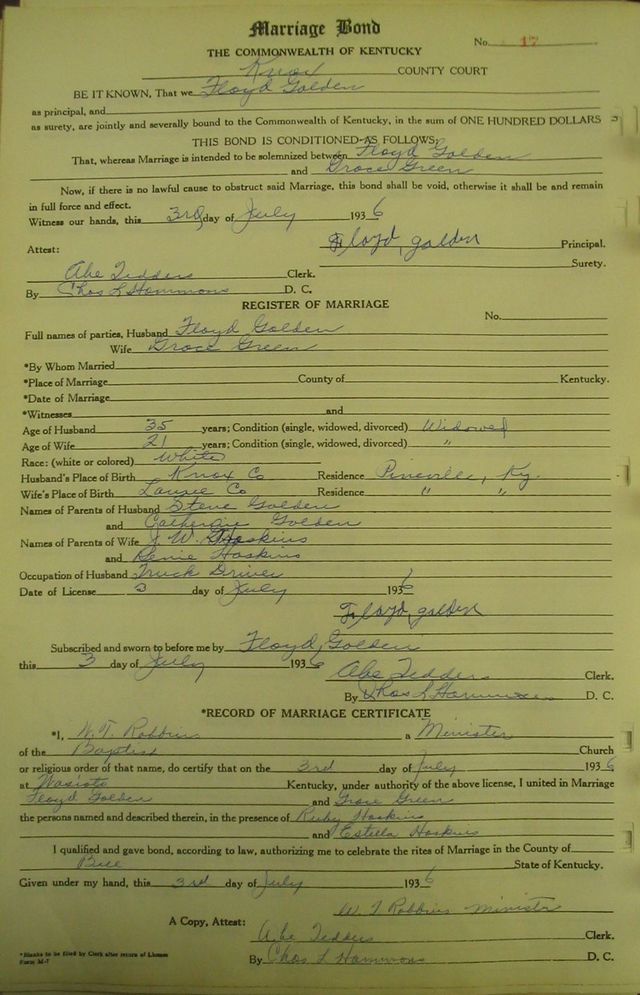 Marriage Bond
No. 17
THE COMMONWEALTH OF KENTUCKY
Knox COUNTY COURT
BE IT KNOWN, That we Floyd Golden
as principal, and
as surety, are jointly and severally bound to the Commonwealth of Kentucky, in the sum of ONE HUNDRED DOLLARS
THIS BOND IS CONDITIONED AS FOLLOWS:
That, whereas Marriage is intended to be solemnized between Floyd Golden
and Grace Green
Now, if there is no lawful cause to obstruct said Marriage, this bond shall be void, otherwise it shall be and remain
in full force and effect.
Witness our hands, this 3rd day of July 1936
Floyd golden Principal.
Attest:
Surety.
Abe Tedders Clerk.
By Chas L Hammons D. C.
REGISTER OF MARRIAGE
No.
Full names of parties, Husband Floyd Golden
Wife Grace Green
*By Whom Married
*Place of Marriage County of Kentucky.
*Date of Marriage
*Witnesses and
Age of Husband 35 years; Condition (single, widowed, divorced) Widowed
Age of Wife 21 years; Condition (single, widowed, divorced) "
Race: (white or colored) White
Husband's Place of Birth Knox Co Residence Pineville, Ky.
Wife's Place of Birth Co Residence " "
Names of Parents of Husband Steve Golden
and Golden
Names of Parents of Wife J. W. Hoskins
and Hoskins
Occupation of Husband Truck Driver
Date of License 3 day of July 1936
Floyd golden
Subscribed and sworn to before me by Floyd Golden
this 3 day of July 1936
Abe Tedders Clerk.
By Chas L Hammons D. C.
*RECORD OF MARRIAGE CERTIFICATE
*I, W. T. Robbins a Minister
of the Baptist Church
or religious order of that name, do certify that on the 3rd day of July 1936
at Wasioto Kentucky, under authority of the above license, I united in Marriage
Floyd Golden and Grace Green
the persons named and described therein, in the presence of Ruby Hoskins
and Estella Hoskins
I qualified and gave bond, according to law, authorizing me to celebrate the rites of Marriage in the County of
Bell State of Kentucky.
Given under my hand, this 3rd day of July 1936
W. T Robbins Minister
A Copy, Attest:
Abe Tedders Clerk.
By Chas L Hammons D. C.
*Blanks to be filled by Clerk after return of License
Form M-7